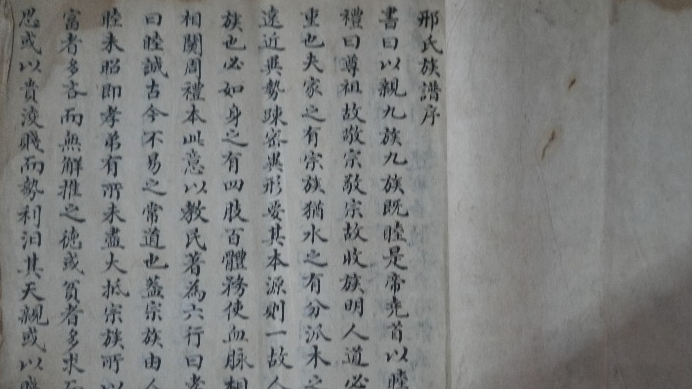 邢氏族譜序
書曰以親九族九族既睦是帝堯首以睦
禮曰尊祖故敬宗敬宗故收族明人道必
重也夫家之有宗族猶水之有分派木之
遠近異勢疎密異形要其本源則一故人
族也必如身之有四肢百體務使血脉相
相關周禮本此意以教民著為六行曰孝
曰睦誠古今不易之常道也蓋宗族由人
睦未昭即孝弟有所未盡大抵宗族所以
富者多吝而無解推之徳或貧者多求而
思或以貴淩賤而勢利汨其天親或以賤